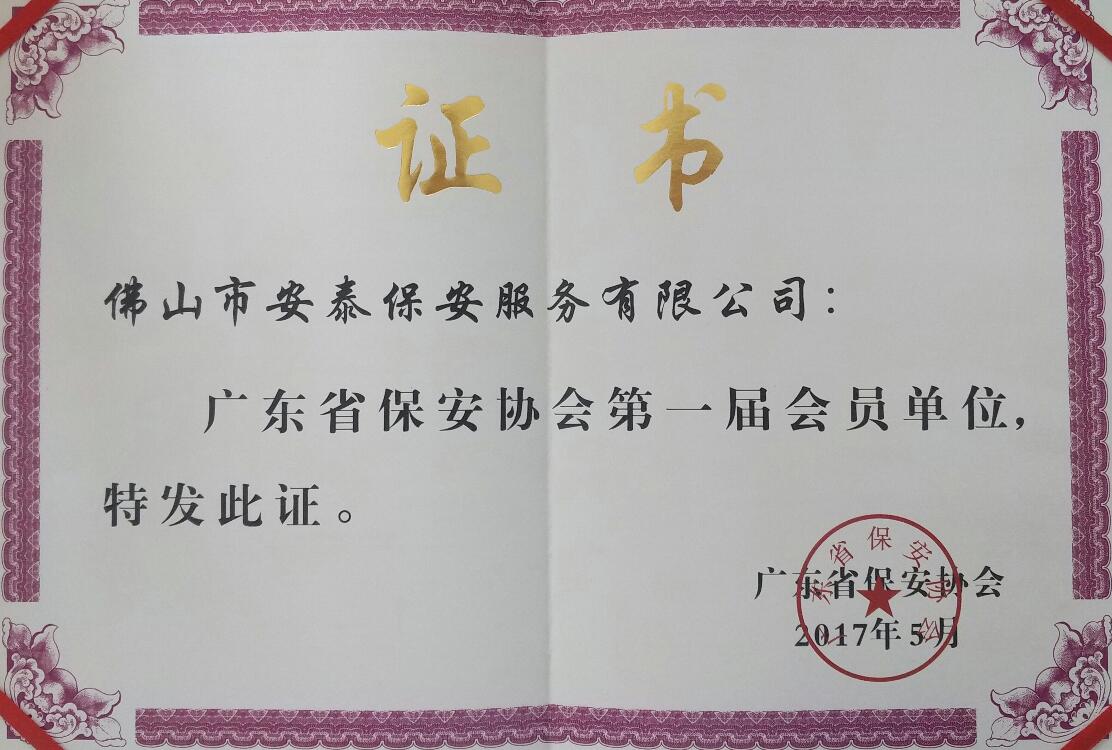 证书
佛山市安泰保安服务有限公司：
广东省保安协会第一届会员单位，
特发此证。
广东省保安协会
2017年5月
广东省保安协会